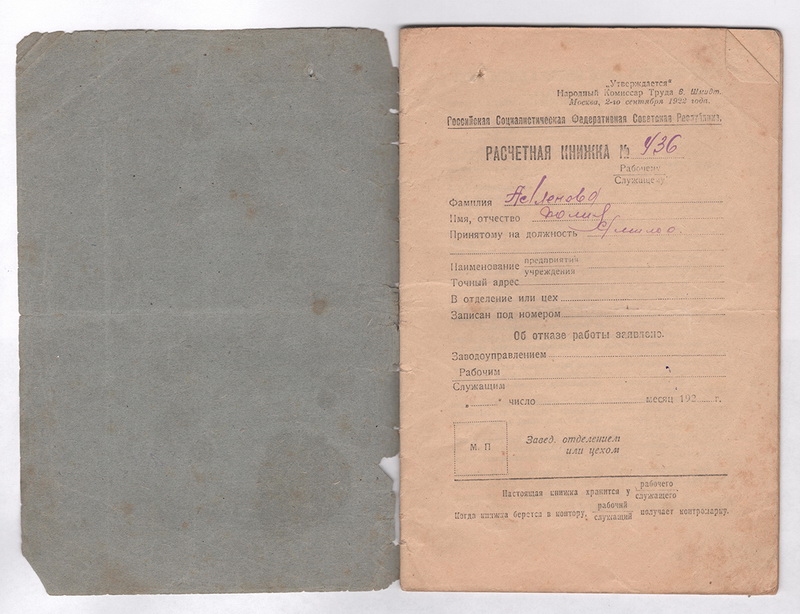 „Утверждается“
Народный Комиссар Труда В. Шмидт.
Москва, 2-го сентября 1922 года.
Российская Социалистическая Федеративная Советская Республика.
РАСЧЕТНАЯ КНИЖКА № 436
Рабочему
Служащему
Фамилия
Имя, отчество Юлия
Принятому на должность
Наименование предприятия
учреждения
Точный адрес
В отделение или цех
Записан под номером
Об отказе работы заявлено.
Заводоуправлением
Рабочим
Служащим
„ “ число месяц 192 г.
М. П
Завед. отделением
или цехом
Настоящая книжка хранится у рабочего
служащего
Когда книжка берется в контору, рабочий
служащий получает контромарку.